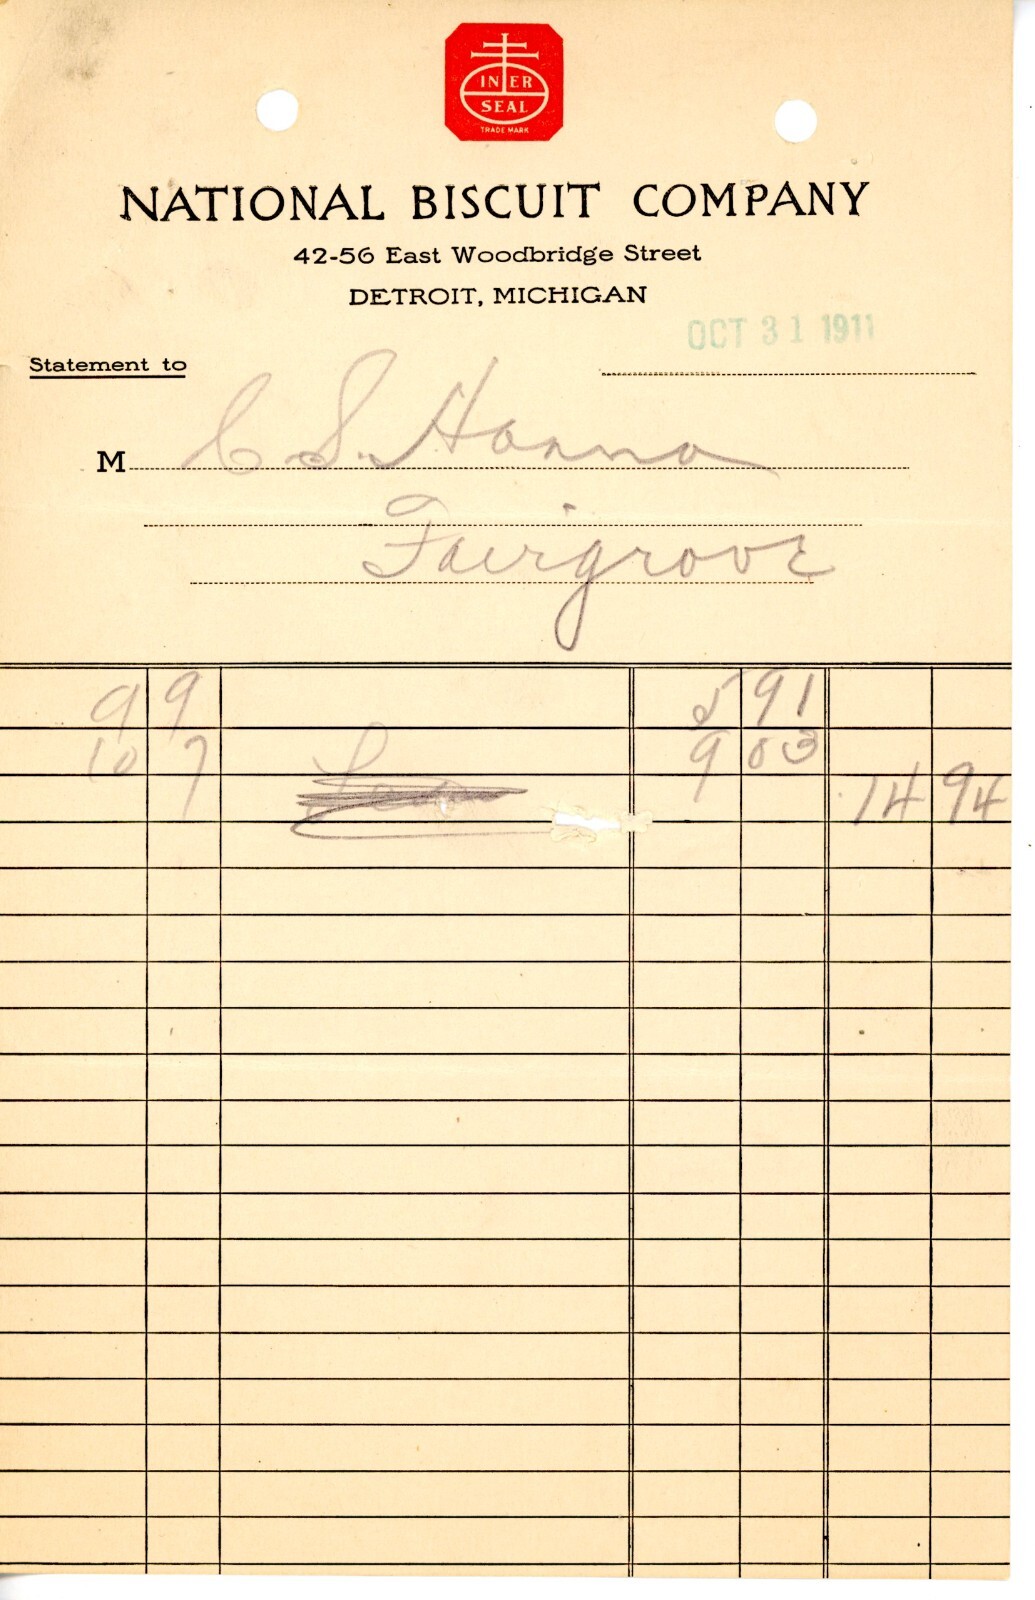 INTER
SEAL
TRADE MARK
NATIONAL BISCUIT COMPANY
42-56 East Woodbridge Street
DETROIT, MICHIGAN
OCT 31 1911
Statement to
M C S. Hanna
Fairgrove
9 9 5 91
10 7 9 03
14 94